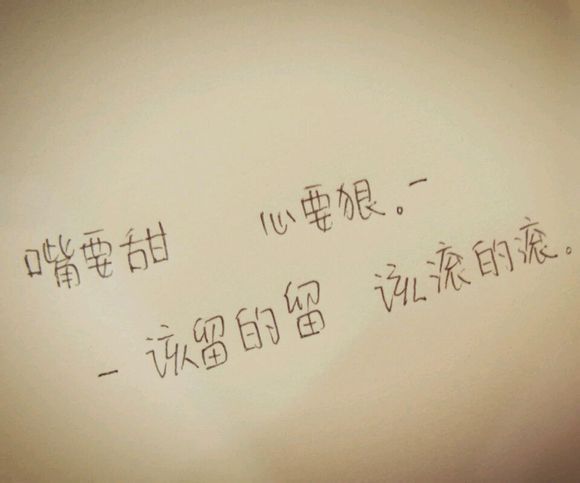 嘴要甜 心要狠。-
- 该留的留 该滚的滚。